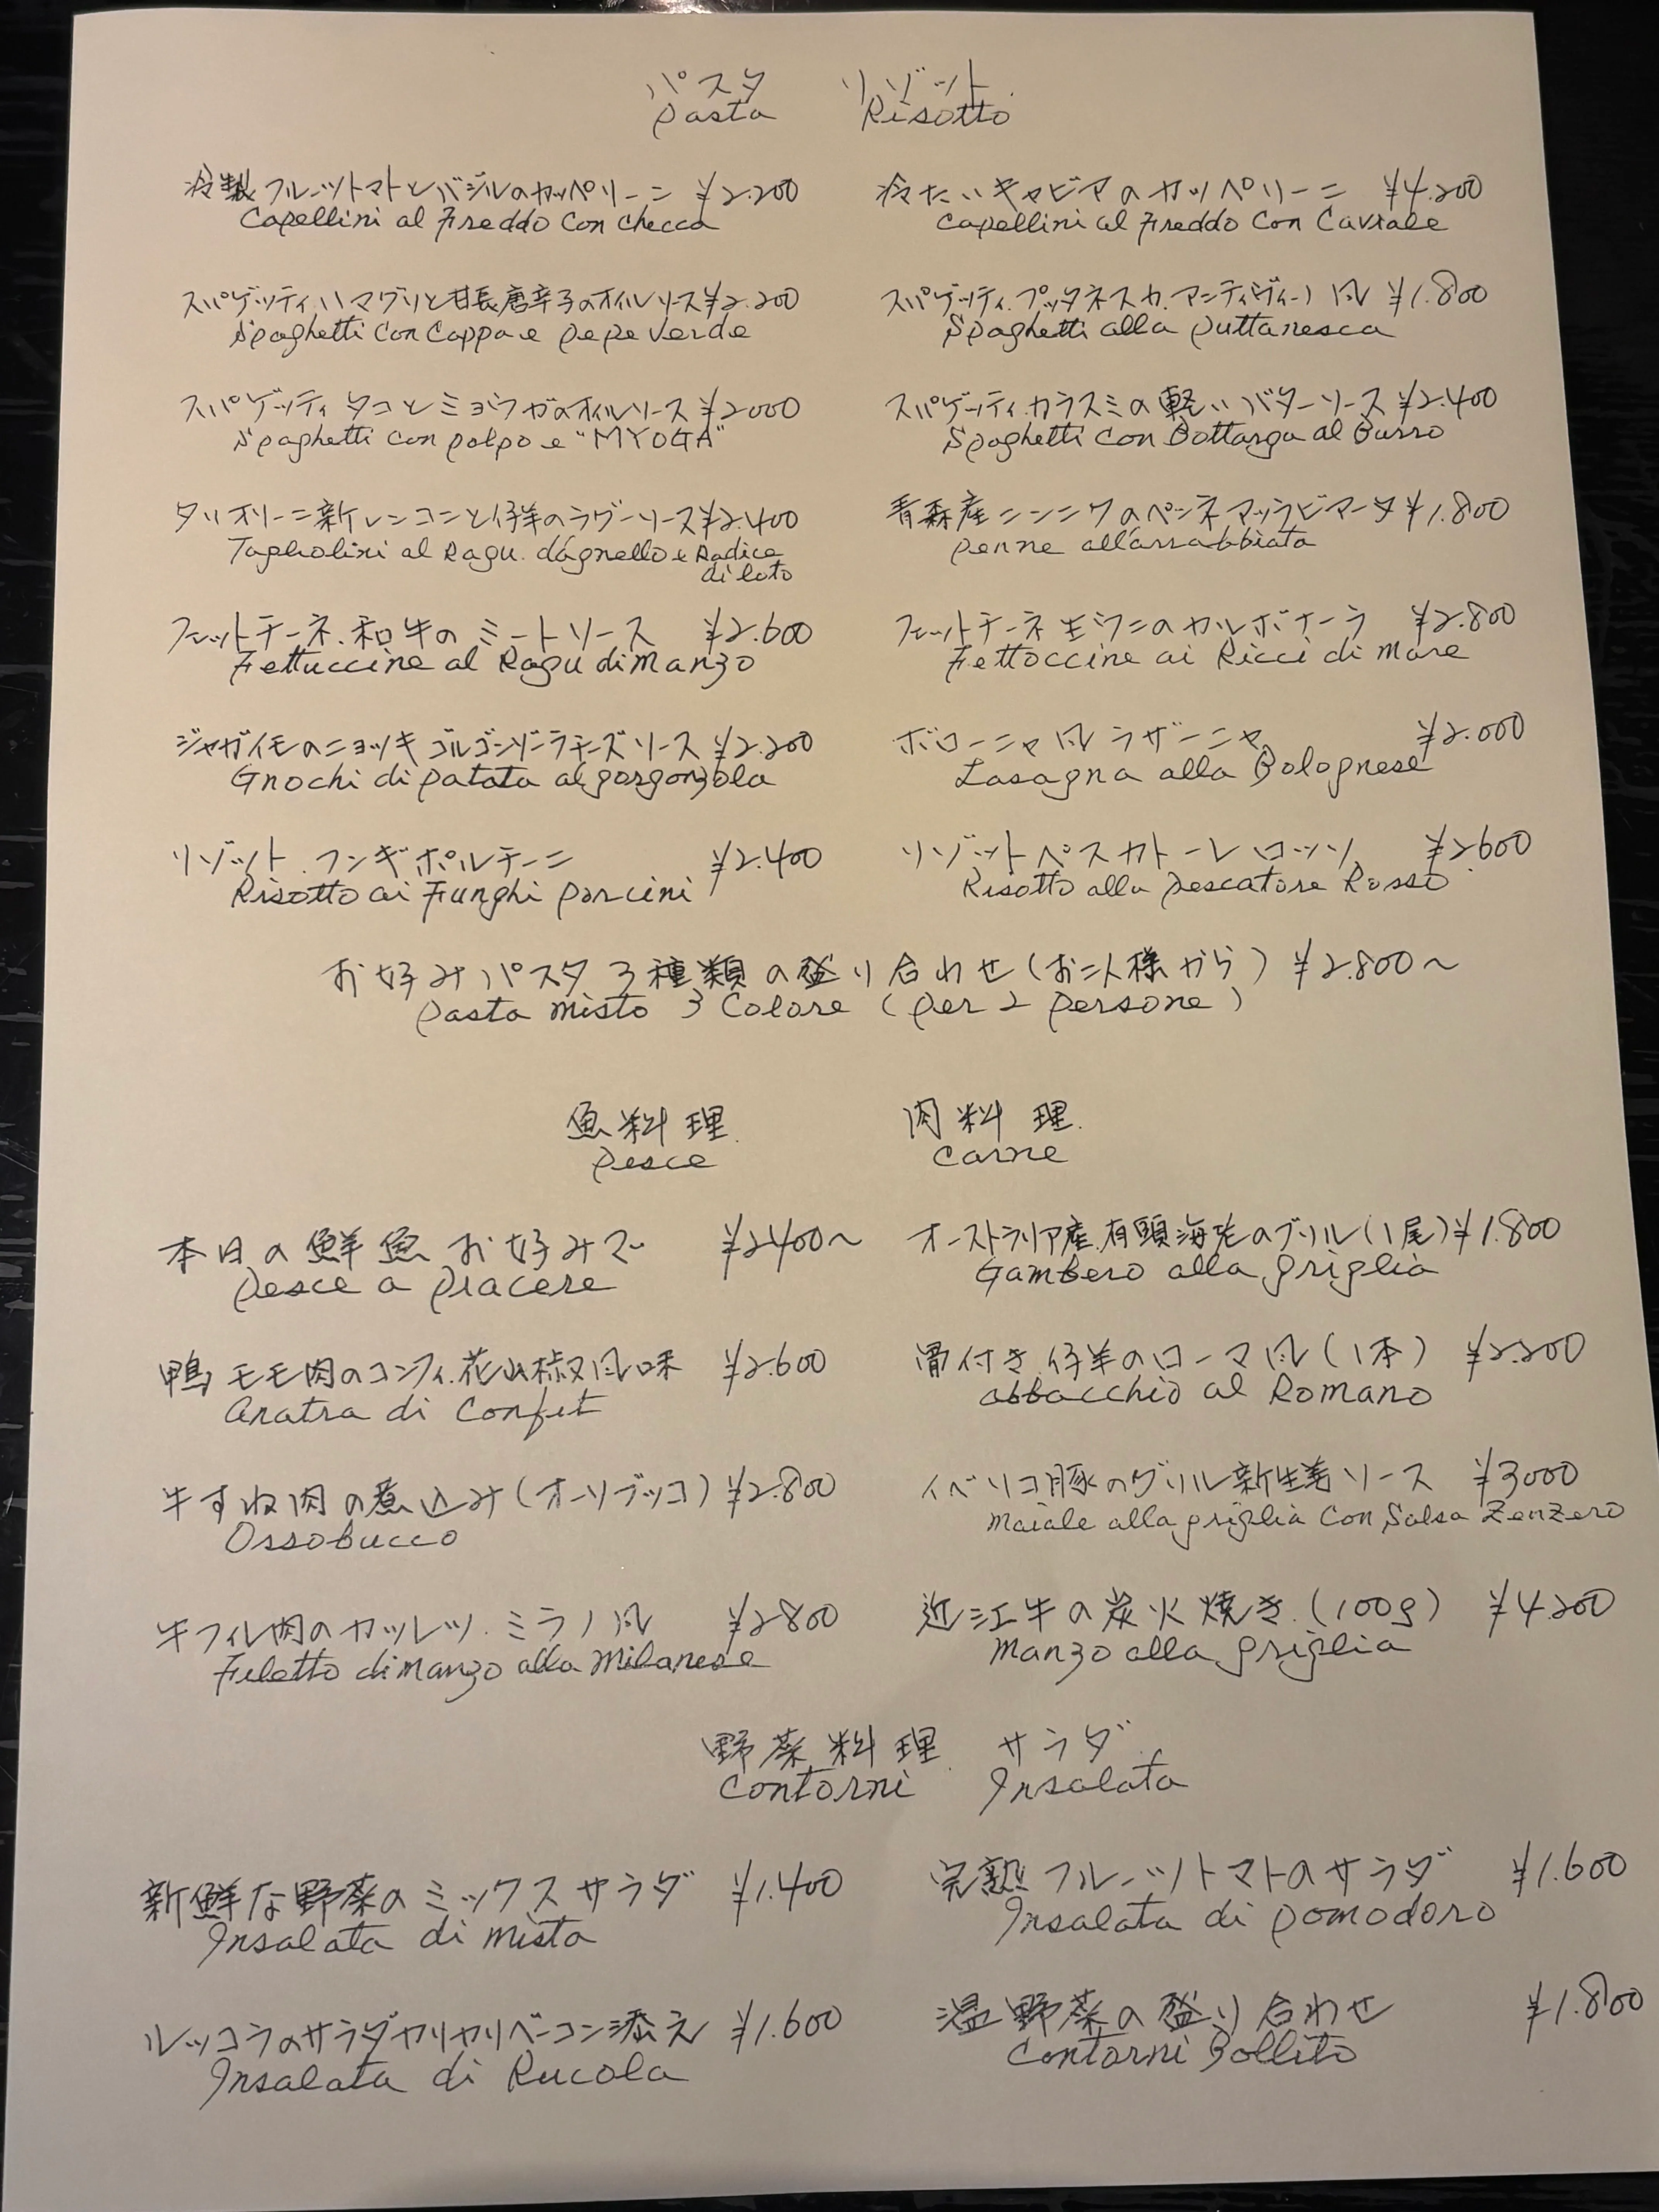 パスタ リゾット
Pasta Risotto
冷製フルーツトマトとバジルのカッペリーニ ¥2.200
Capellini al Freddo Con Checca
冷たいキャビアのカッペリーニ ¥4.200
Capellini al Freddo Con Caviale
スパゲッティ.ハマグリと甘長唐辛子のオイルソース ¥2.200
Spaghetti Con Cappa e pepe Verde
スパゲッティ.プッタネスカ.アンティヴィーノ風 ¥1.800
Spaghetti alla puttanesca
スパゲッティ タコとミョウガのオイルソース ¥2000
Spaghetti con polpo e "MYOGA"
スパゲッティ.カラスミの軽いバターソース ¥2.400
Spaghetti Con Bottarga al Burro
タリオリーニ新レンコンと仔羊のラグーソース ¥2.400
Tagliolini al Ragu. d'agnello e Radice
di loto
青森産ニンニクのペンネアッラビアータ ¥1.800
penne all'arrabbiata
フェットチーネ.和牛のミートソース ¥2.600
Fettuccine al Ragu di Manzo
フェットチーネ生ウニのカルボナーラ ¥2.800
Fettoccine ai Ricci di Mare
ジャガイモのニョッキ ゴルゴンゾーラチーズソース ¥2.200
Gnochi di patata al gorgonzola
ボローニャ風ラザーニャ ¥2.000
Lasagna alla Bolognese
リゾット.フンギポルチーニ ¥2.400
Risotto ai Funghi porcini
リゾットペスカトーレロッソ ¥2600
Risotto alla pescatore Rosso
お好みパスタ3種類の盛り合わせ(お二人様から) ¥2.800〜
pasta misto 3 Colore (per 2 persone)
魚料理 肉料理
Pesce Carne
本日の鮮魚お好みで ¥2400〜
Pesce a piacere
オーストラリア産.有頭海老のグリル(1尾) ¥1.800
Gambero alla griglia
鴨モモ肉のコンフィ.花山椒風味 ¥2.600
Anatra di Confit
骨付き仔羊のローマ風(1本) ¥2.200
abbacchio al Romano
牛すね肉の煮込み(オーソブッコ) ¥2.800
Ossobucco
イベリコ豚のグリル新生姜ソース ¥3000
Maiale alla griglia Con Salsa ZenZero
牛フィレ肉のカツレツ.ミラノ風 ¥2800
Filetto di manzo alla Milanese
近江牛の炭火焼き.(100g) ¥4.200
Manzo alla griglia
野菜料理 サラダ
Contorni Insalata
新鮮な野菜のミックスサラダ ¥1.400
Insalata di Mista
完熟フルーツトマトのサラダ ¥1.600
Insalata di pomodoro
ルッコラのサラダカリカリベーコン添え ¥1.600
Insalata di Rucola
温野菜の盛り合わせ ¥1.800
Contorni Bollito